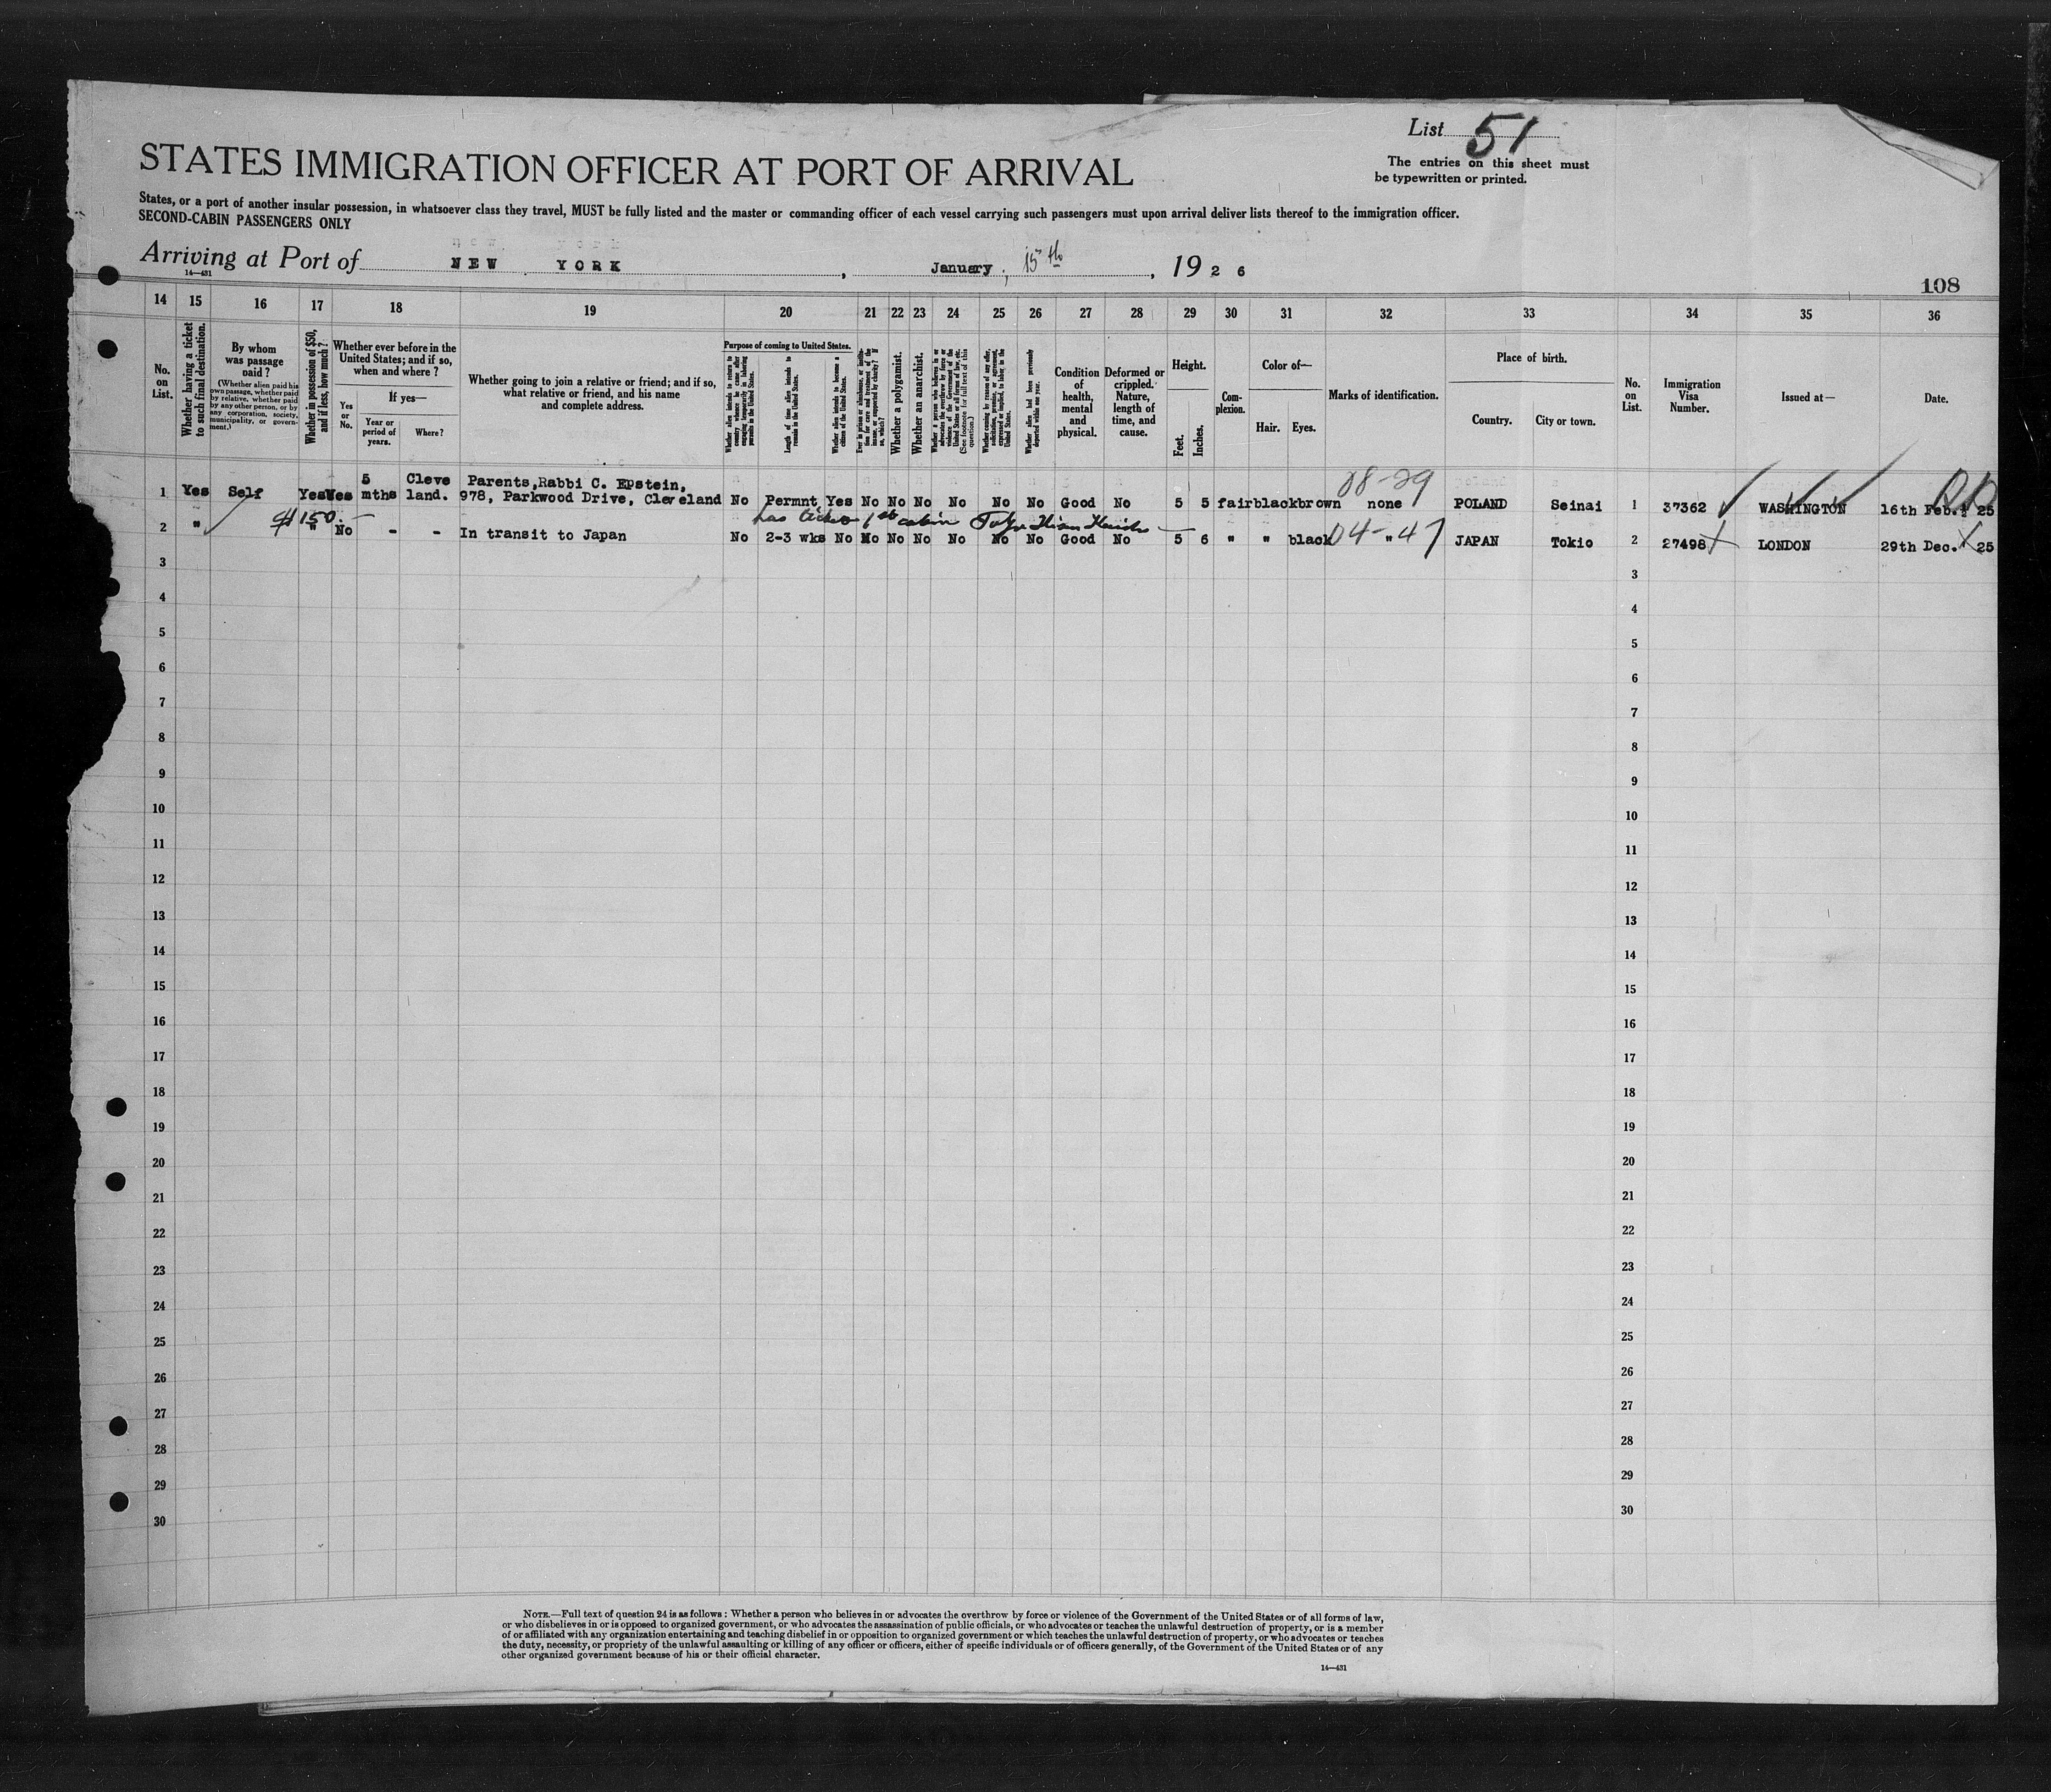 List 51
The entries on this sheet must
be typewritten or printed.
STATES IMMIGRATION OFFICER AT PORT OF ARRIVAL
States, or a port of another insular possession, in whatsoever class they travel, MUST be fully listed and the master or commanding officer of each vessel carrying such passengers must upon arrival deliver lists thereof to the immigration officer.
SECOND-CABIN PASSENGERS ONLY
Arriving at Port of NEW YORK, January, 15th, 1926
14—431
108
14 15 16 17 18 19 20 21 22 23 24 25 26 27 28 29 30 31 32 33 34 35 36
No. on List.
Whether having a ticket to such final destination.
By whom was passage paid?
(Whether alien paid his own passage, whether paid by relative, whether paid by any other person, or by any corporation, society, municipality, or government.)
Whether in possession of $50, and if less, how much?
Whether ever before in the United States; and if so, when and where?
Yes or No.
If yes—
Year or period of years.
Where?
Whether going to join a relative or friend; and if so, what relative or friend, and his name and complete address.
Purpose of coming to United States.
Whether alien intends to return to country whence he came after engaging temporarily in laboring pursuits in the United States.
Length of time alien intends to remain in the United States.
Whether alien intends to become a citizen of the United States.
Ever in prison or almshouse, or institution for care and treatment of the insane, or supported by charity? If so, which?
Whether a polygamist.
Whether an anarchist.
Whether a person who believes in or advocates the overthrow by force or violence of the Government of the United States or all forms of law, etc. (See footnote for full text of this question.)
Whether coming by reason of any offer, solicitation, promise, or agreement, expressed or implied, to labor in the United States.
Whether alien had been previously deported within one year.
Condition of health, mental and physical.
Deformed or crippled. Nature, length of time, and cause.
Height.
Feet. Inches.
Complexion.
Color of—
Hair. Eyes.
Marks of identification.
Place of birth.
Country. City or town.
No. on List.
Immigration Visa Number.
Issued at—
Date.
08-29
1 Yes Self Yes Yes 5 mths Cleveland. Parents,Rabbi C. Epstein, 978, Parkwood Drive, Cleveland No Permnt Yes No No No No No No Good No 5 5 fair black brown none POLAND Seinai 1 37362 WASHINGTON 16th Feb. 25
$150.— has ticket 1st cabin
2 " " No - - In transit to Japan No 2-3 wks No No No No No No No Good No 5 6 " " black " JAPAN Tokio 2 27498 LONDON 29th Dec. 25
04-47
3 3
4 4
5 5
6 6
7 7
8 8
9 9
10 10
11 11
12 12
13 13
14 14
15 15
16 16
17 17
18 18
19 19
20 20
21 21
22 22
23 23
24 24
25 25
26 26
27 27
28 28
29 29
30 30
NOTE.—Full text of question 24 is as follows: Whether a person who believes in or advocates the overthrow by force or violence of the Government of the United States or of all forms of law,
or who disbelieves in or is opposed to organized government, or who advocates the assassination of public officials, or who advocates or teaches the unlawful destruction of property, or is a member
of or affiliated with any organization entertaining and teaching disbelief in or opposition to organized government or which teaches the unlawful destruction of property, or who advocates or teaches
the duty, necessity, or propriety of the unlawful assaulting or killing of any officer or officers, either of specific individuals or of officers generally, of the Government of the United States or of any
other organized government because of his or their official character.
14—431